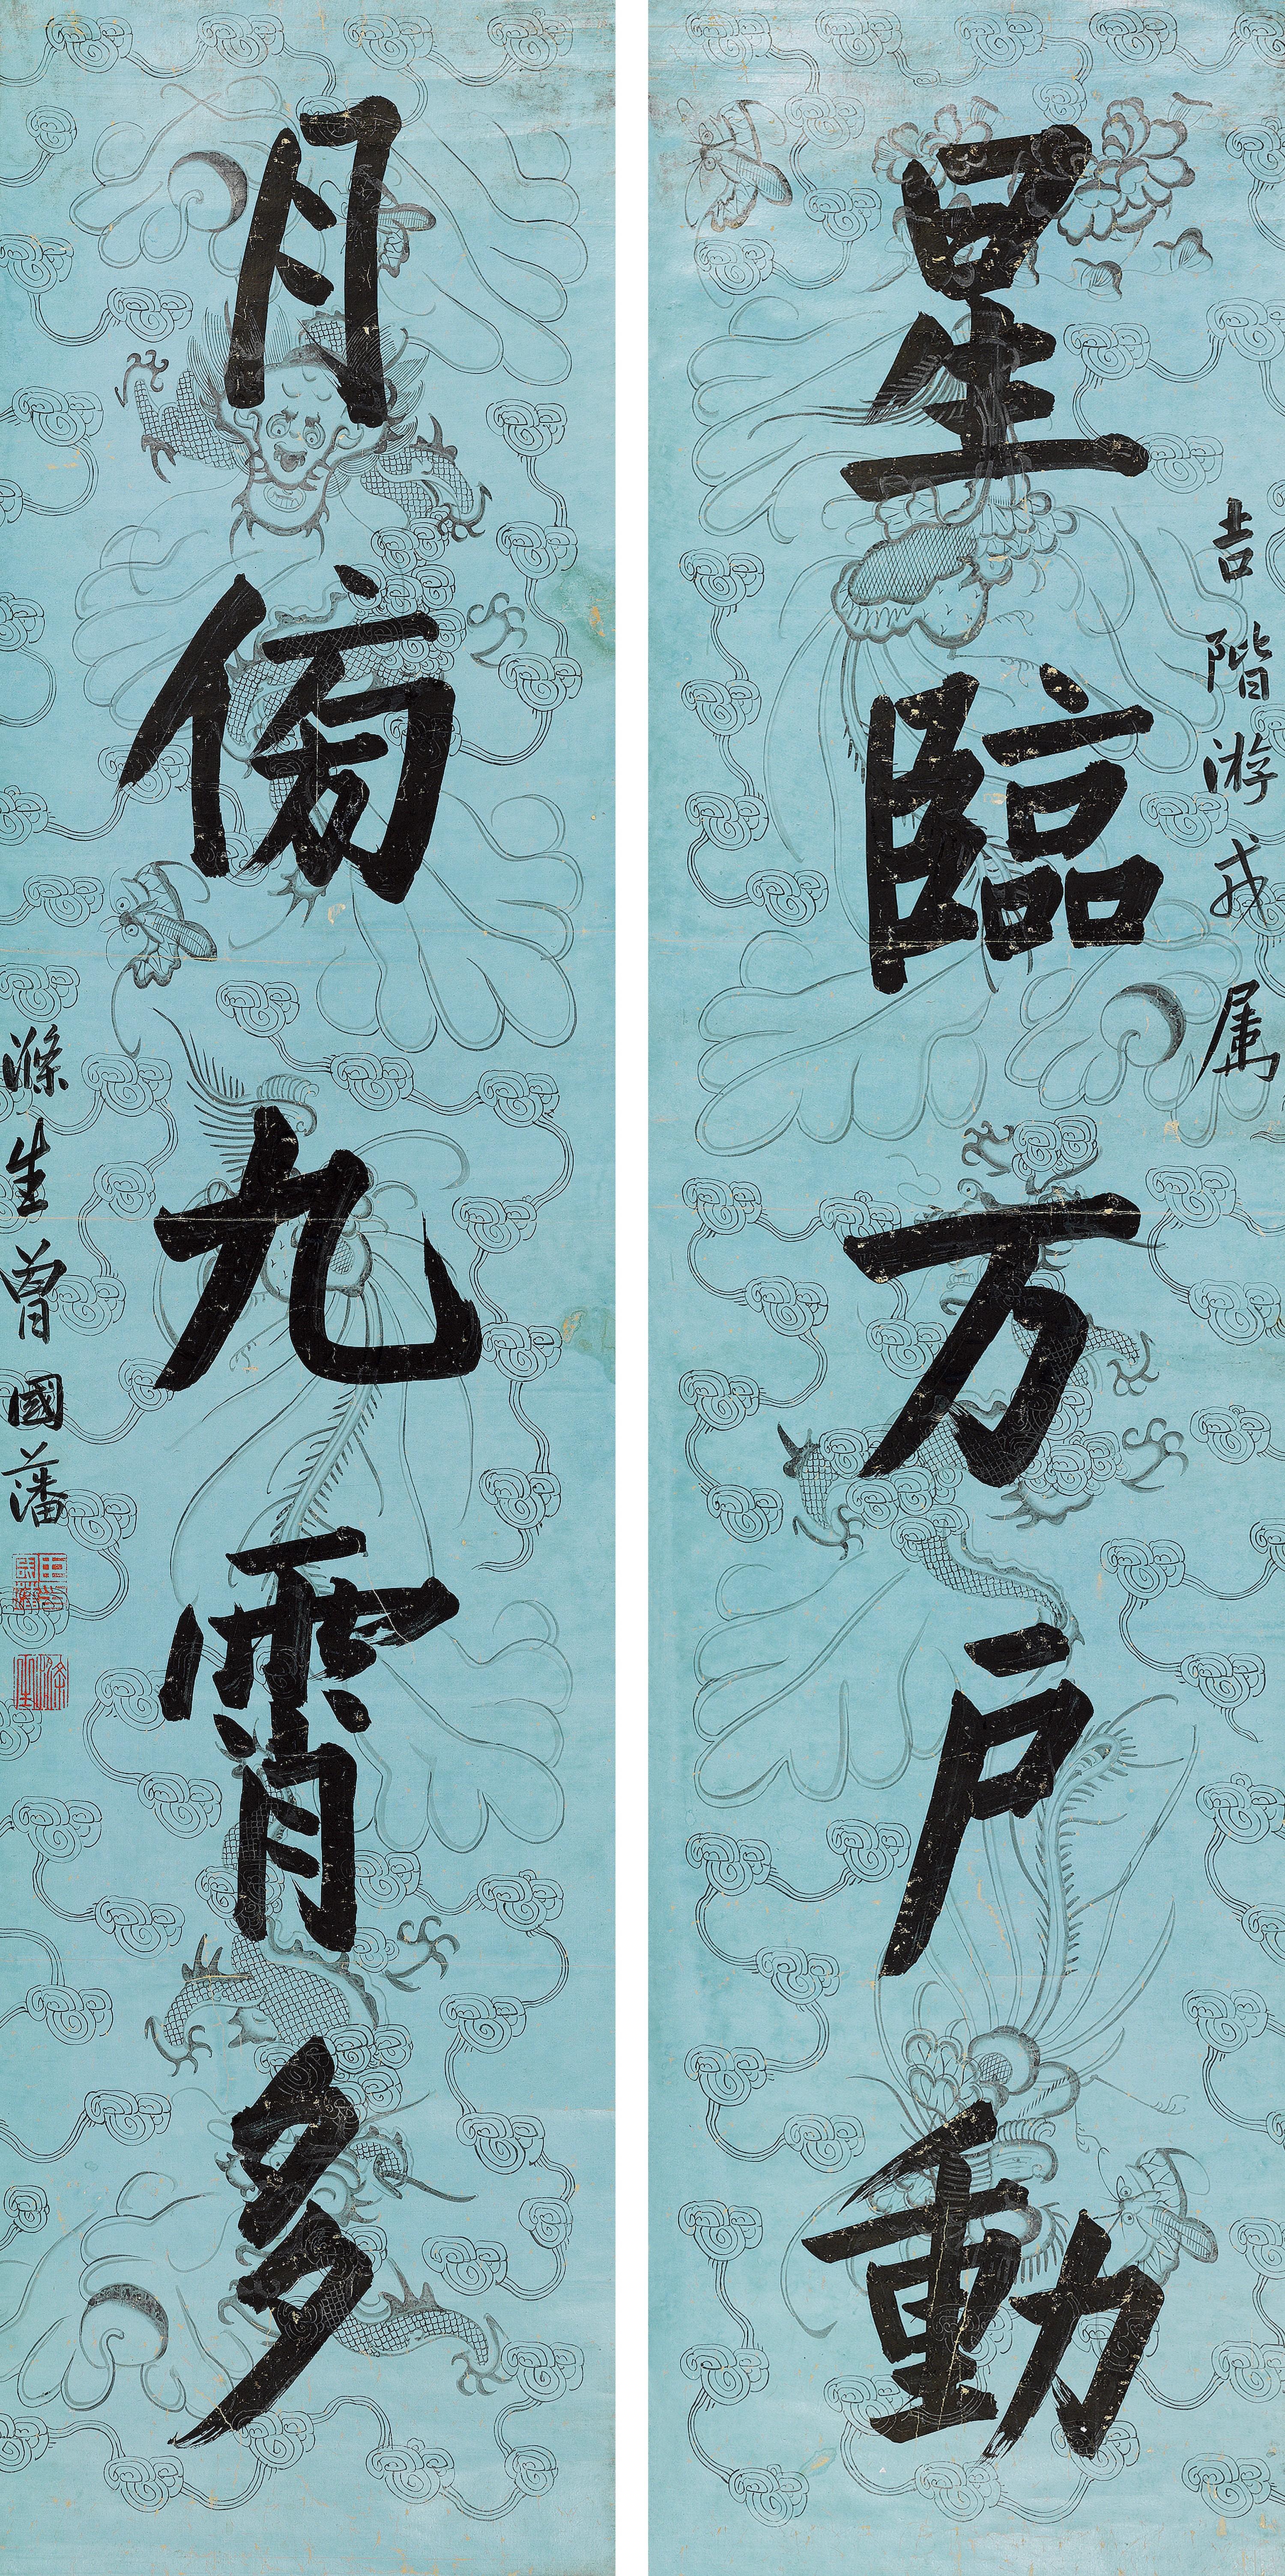 星臨万戶動
吉階游戎属
月傍九霄多
滌生曾國藩